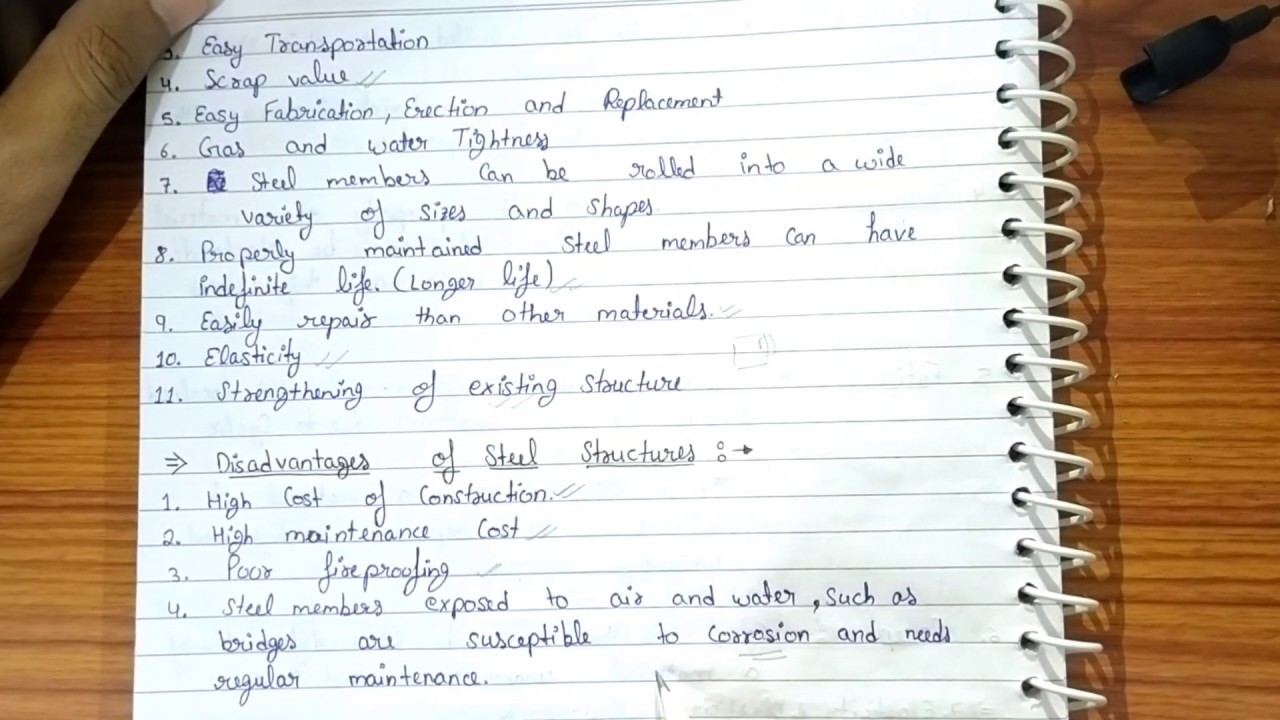 3. Easy Transportation
4. Scrap value
5. Easy Fabrication, Erection and Replacement
6. Gas and water Tightness
7. Steel members can be rolled into a wide
variety of sizes and shapes.
8. Properly maintained steel members can have
indefinite life. (Longer life)
9. Easily repair than other materials.
10. Elasticity
11. Strengthening of existing structure
⇒ Disadvantages of Steel Structures :→
1. High Cost of Construction.
2. High maintenance Cost
3. Poor fireproofing
4. Steel members exposed to air and water, such as
bridges are susceptible to corrosion and needs
regular maintenance.